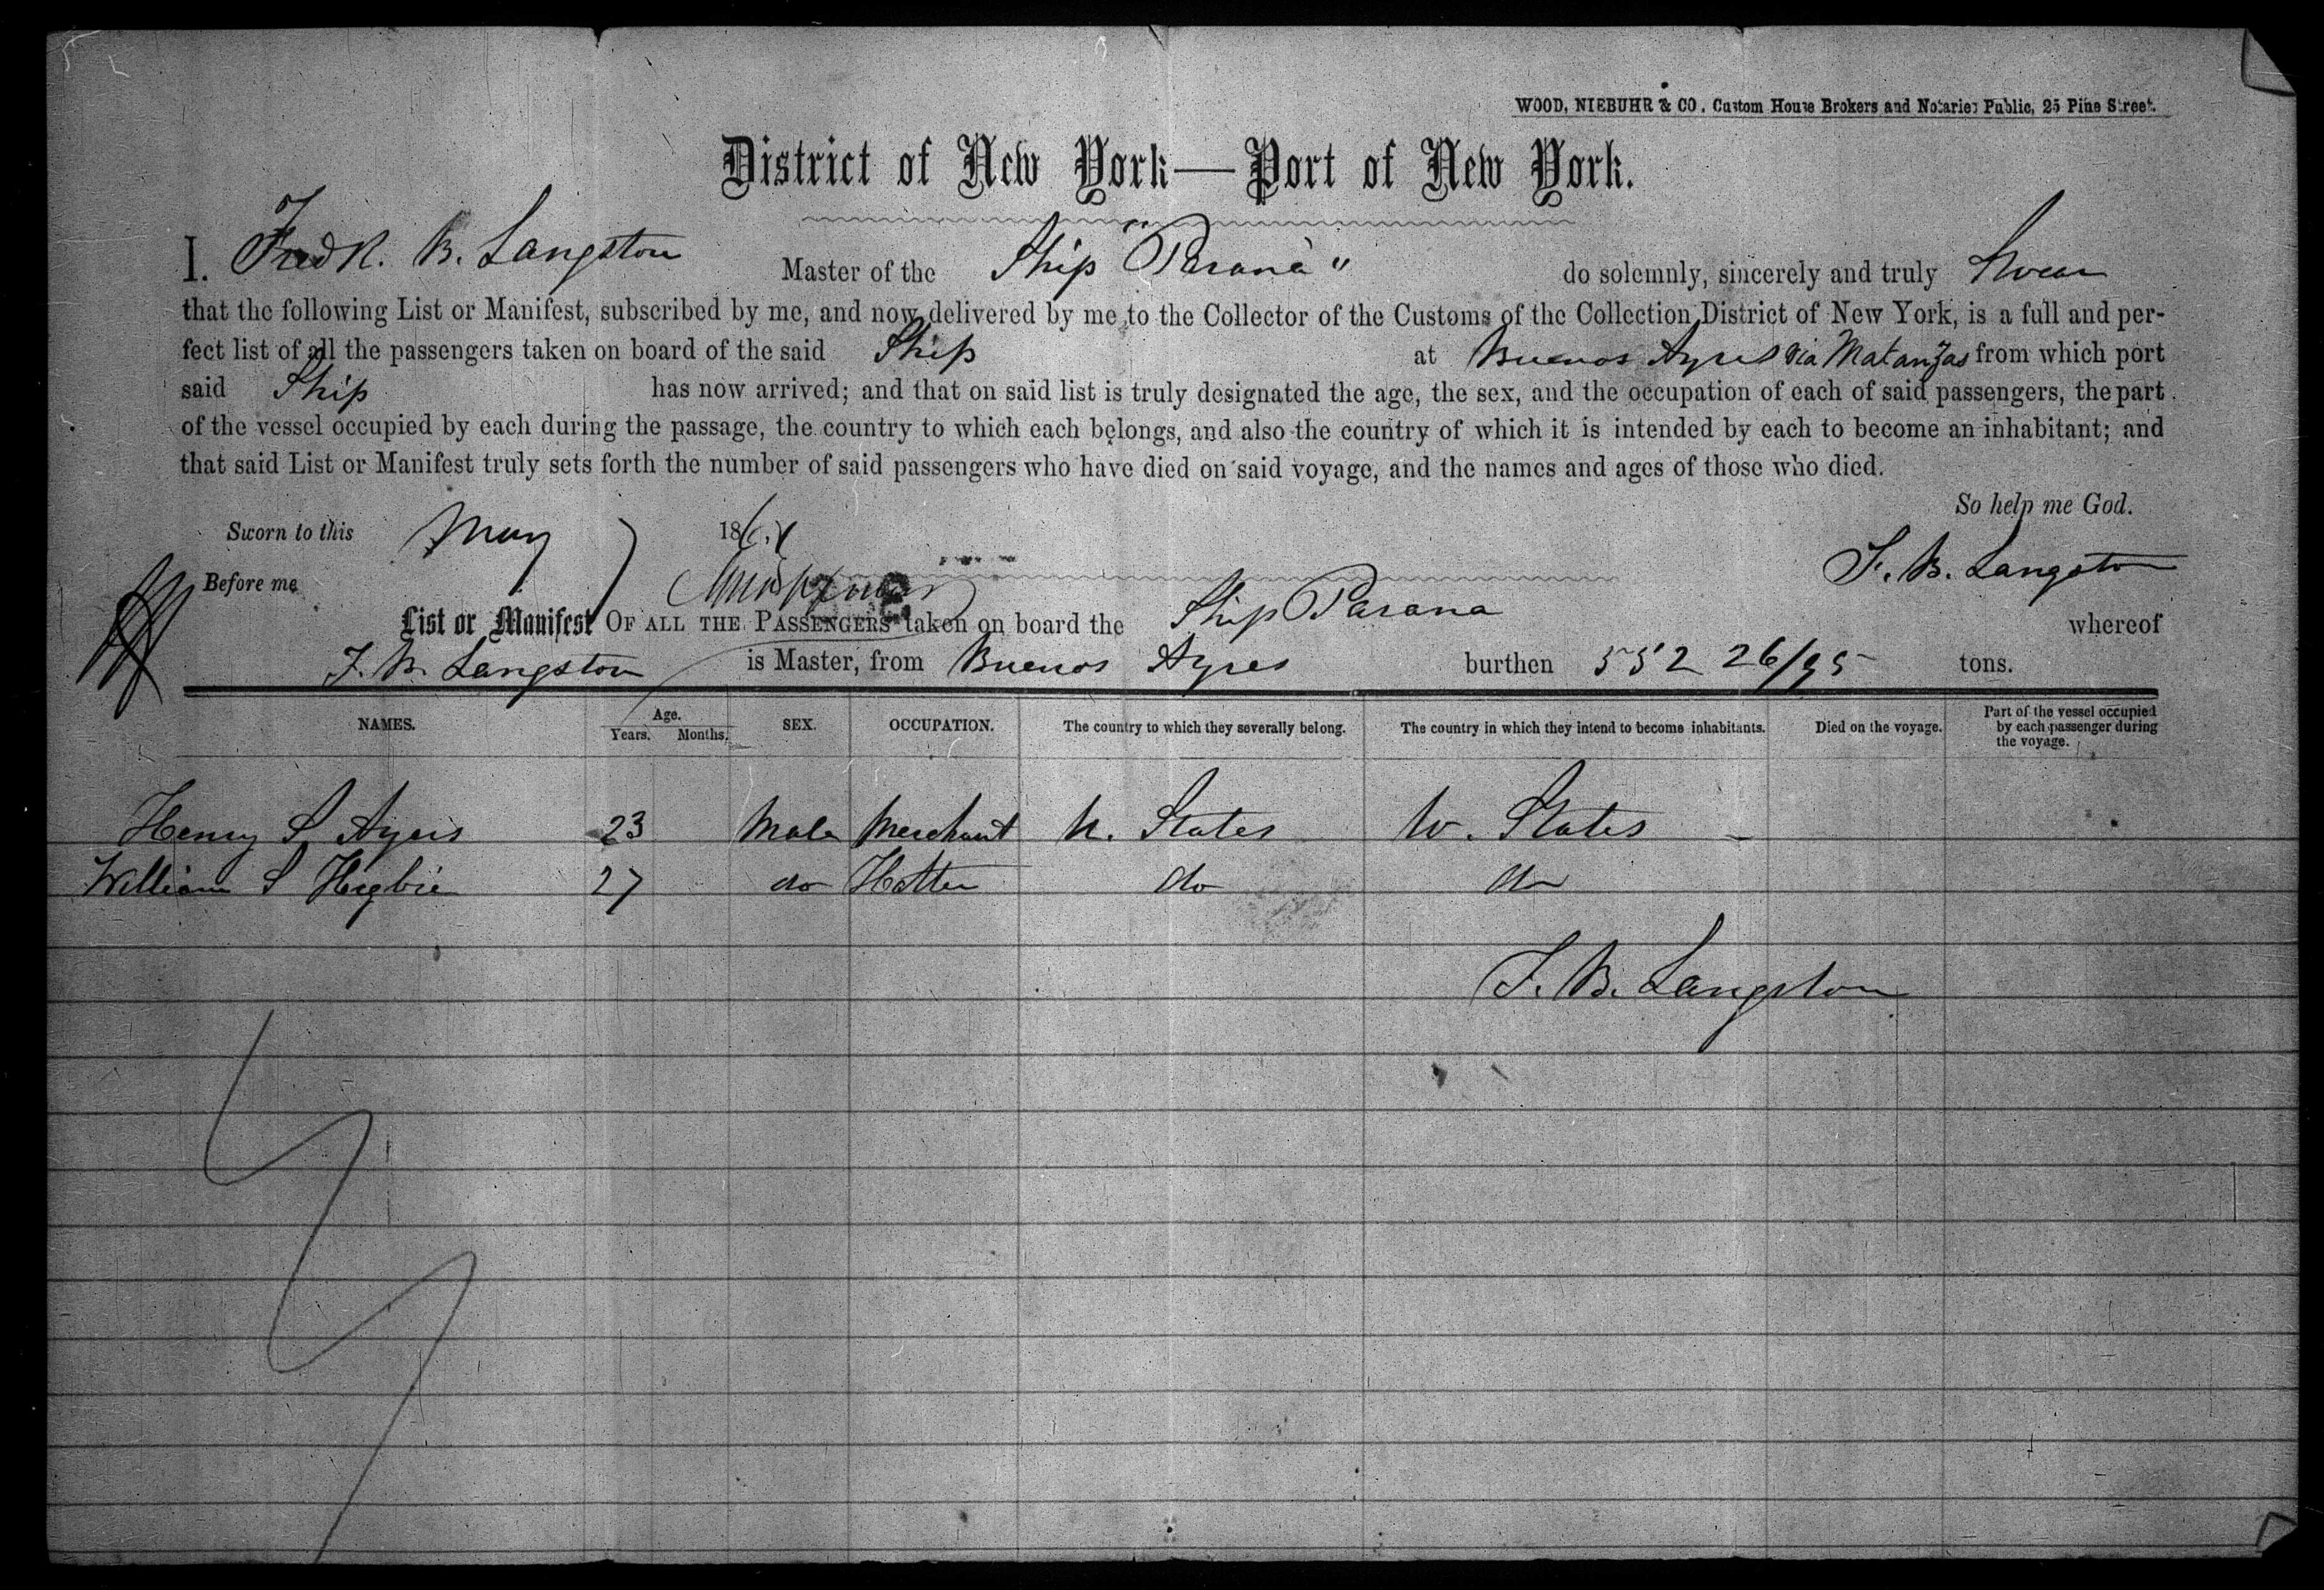 WOOD, NIEBUHR & CO, Custom House Brokers and Notaries Public, 25 Pine Street.
District of New York—Port of New York.
I. Fredk. B. Langston Master of the Ship "Parana" do solemnly, sincerely and truly Swear
that the following List or Manifest, subscribed by me, and now delivered by me to the Collector of the Customs of the Collection District of New York, is a full and per-
fect list of all the passengers taken on board of the said Ship at Buenos Ayres via Matanzas from which port
said Ship has now arrived; and that on said list is truly designated the age, the sex, and the occupation of each of said passengers, the part
of the vessel occupied by each during the passage, the country to which each belongs, and also the country of which it is intended by each to become an inhabitant; and
that said List or Manifest truly sets forth the number of said passengers who have died on said voyage, and the names and ages of those who died.
So help me God.
Sworn to this May 186
F. B. Langston
Before me
List or Manifest OF ALL THE PASSENGERS taken on board the Ship Parana whereof
F. B. Langston is Master, from Buenos Ayres burthen 552 26/95 tons.
NAMES. Age. Years. Months. SEX. OCCUPATION. The country to which they severally belong. The country in which they intend to become inhabitants. Died on the voyage. Part of the vessel occupied by each passenger during the voyage.
Henry S Ayers 23 Male Merchant U. States U. States
William S Higbie 27 do Hatter do do
F. B. Langston